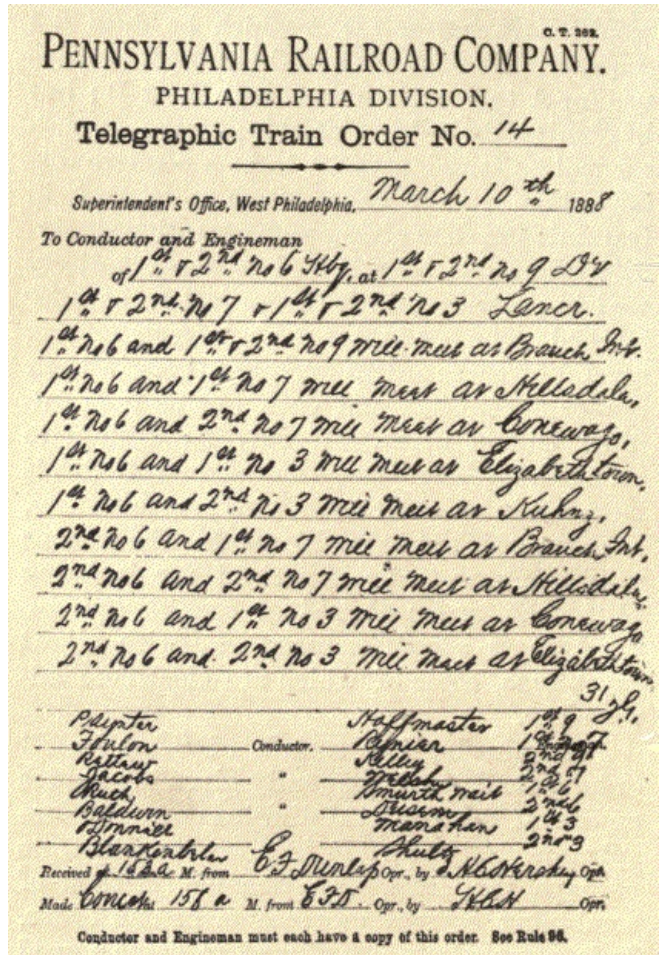 C. T. 262.
PENNSYLVANIA RAILROAD COMPANY.
PHILADELPHIA DIVISION.
Telegraphic Train Order No. 14
Superintendent's Office, West Philadelphia, March 10th 1888
To Conductor and Engineman
of 1st & 2nd No 6 Hbg, at 1st & 2nd No 9 DV
1st & 2nd No 7 & 1st & 2nd No 3 Lancr.
1st No 6 and 1st & 2nd No 9 will meet at Branch Int.
1st No 6 and 1st No 7 will meet at Hillsdale,
1st No 6 and 2nd No 7 will meet at Conewago,
1st No 6 and 1st No 3 will meet at Elizabethtown,
1st No 6 and 2nd No 3 will meet at Kuhns,
2nd No 6 and 1st No 7 will meet at Branch Int,
2nd No 6 and 2nd No 7 will meet at Hillsdale,
2nd No 6 and 1st No 3 will meet at Conewago
2nd No 6 and 2nd No 3 will meet at Elizabethtown
31
Paynter Hoffmaster 1st 9
Foulon Conductor.
Kelley
Jacobs " Welsh
1st 6
Baldwin " 2nd 6
Manahan 1st 3
Shultz 2nd 3
Received M. from E F Dunlap Opr., by H C Hershey Opr.
Made at 158 a M. from E F D. Opr., by H C H Opr.
Conductor and Engineman must each have a copy of this order. See Rule 96.